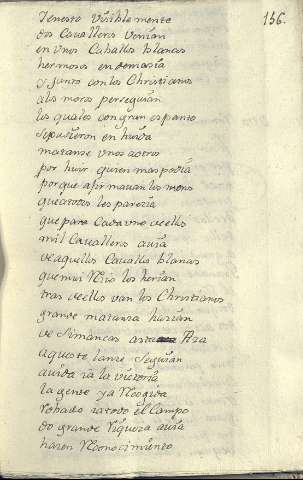 156.
Y en esto visiblemente
dos Cavalleros venian
en unos Caballos blancos
hermosos en demasia
y junto con los Christianos
a los moros perseguian
los quales con gran espanto
se pusieron en huida
matanse unos a otros
por huir quien mas podia
porque afirmavan los moros
que a todos les parezia
que para cada uno dellos
mil Cavalleros avia
de aquellos Cavallos blancos
que mui Rezio los herian
tras dellos van los Christianos
grande matanza hazian
de Simancas asta Aza
aqueste lanze seguian
avida ia la victoria
la gente ya Recogida
Robado ia todo el Campo
do grande Riqueza avia
hazen Reconocimiento